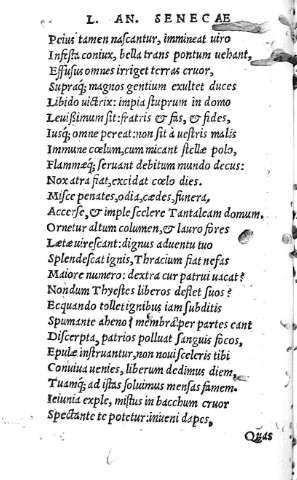 L. AN. SENECAE
Peius tamen nascantur, immineat uiro
Infesta coniux, bella trans pontum uehant,
Effusus omnes irriget terras cruor,
Supraq; magnos gentium exultet duces
Libido uictrix: impia stuprum in domo
Leuißimum sit: fratris & fas, & fides,
Iusq; omne pereat: non sit à uestris malis
Immune cœlum, cum micant stellæ polo,
Flammæq; seruant debitum mundo decus:
Nox atra fiat, excidat cœlo dies.
Misce penates, odia, cædes, funera,
Accerse, & imple scelere Tantaleam domum.
Ornetur altum columen, & lauro fores
Lætæ uirescant: dignus aduentu tuo
Splendescat ignis, Thracium fiat nefas
Maiore numero: dextra cur patrui uacat?
Nondum Thyestes liberos deflet suos?
Ecquando tollet ignibus iam subditis
Spumante aheno? membra per partes eant
Discerpta, patrios polluat sanguis focos,
Epulæ instruantur, non noui sceleris tibi
Conuiua uenies, liberum dedimus diem,
Tuamq; ad istas soluimus mensas famem.
Ieiunia exple, mistus in bacchum cruor
Spectante te potetur: inueni dapes,
Quas